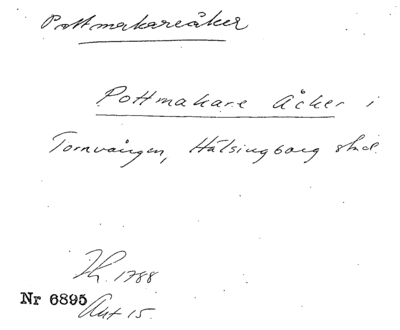 Pottmakareåker
Pottmakare Åcker i
Tornvången, Hälsingborg stad.
1788
Nr 6895
Akt 15.